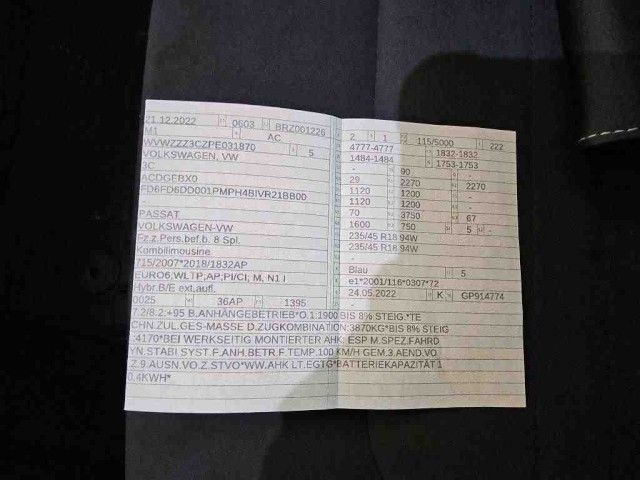 21.12.2022 0603 BRZ001226
M1 AC
WVWZZZ3CZPE031870 5
VOLKSWAGEN, VW
3C
ACDGEBX0
FD6FD6DD001PMPH4BIVR21BB00
-
PASSAT
VOLKSWAGEN-VW
Fz.z.Pers.bef.b. 8 Spl.
Kombilimousine
715/2007*2018/1832AP
EURO6,WLTP,AP,PI/CI, M, N1 I
Hybr.B/E ext.aufl.
0025 36AP 1395
2 1 115/5000 222
4777-4777 1832-1832
1484-1484 1753-1753
- 90 -
29 2270 2270
1120 1200 -
1120 1200 -
70 3750 67
1600 750 5 -
235/45 R18 94W
235/45 R18 94W
-
Blau 5
e1*2001/116*0307*72
24.05.2022 K GP914774
7.2/8.2:+95 B.ANHÄNGEBETRIEB*O.1:1900 BIS 8% STEIG.*TE
CHN.ZUL.GES-MASSE D.ZUGKOMBINATION:3870KG*BIS 8% STEIG
.:4170*BEI WERKSEITIG MONTIERTER AHK: ESP M.SPEZ.FAHRD
YN.STABI.SYST.F.ANH.BETR.F.TEMP.100 KM/H GEM.3.AEND.VO
Z.9.AUSN.VO.Z.STVO*WW.AHK LT.EGTG*BATTERIEKAPAZITÄT 1
0.4KWH*